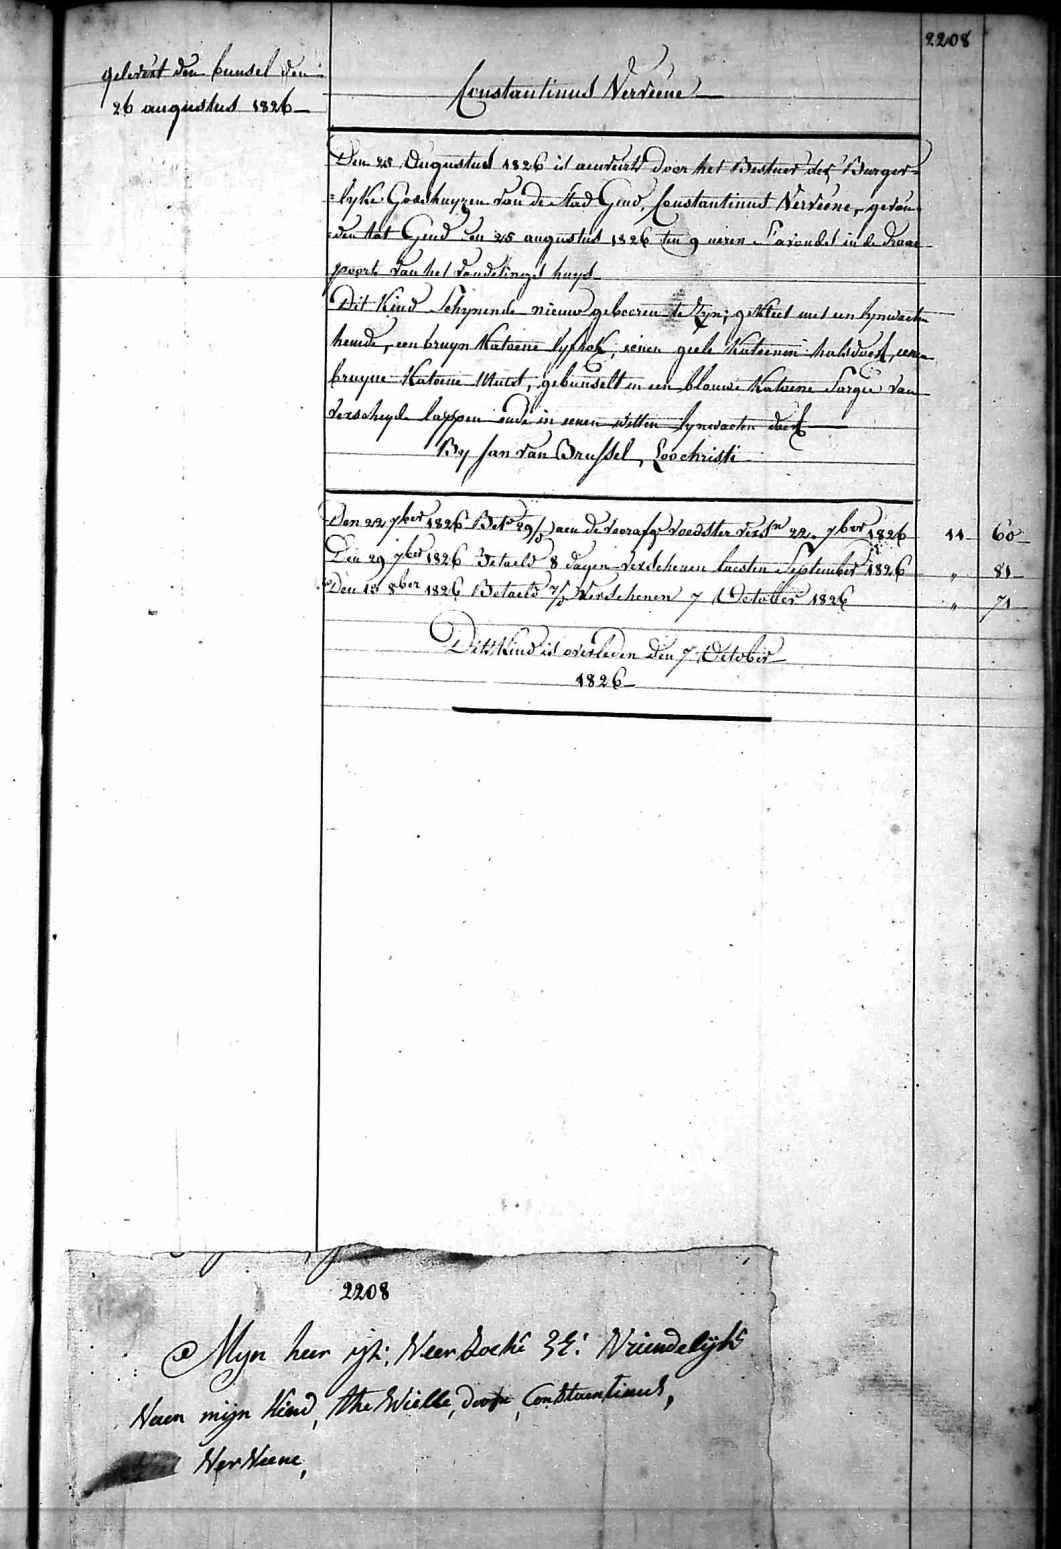 2208
gelevert den bunsel den
26 augustus 1826
Constantinus Nerviene
Den 25 Augustus 1826 is aenveird door het Bestuer der Burger-
-lyke Godshuyzen van de stad Gend, Constantinus Nerviene, gevon-
-den tot Gend den 25 augustus 1826 ten 9 ueren s'avonds in de draai
poorte van het vondelingen huys
Dit Kind Schynende nieuw gebooren te Zyn; gekleet met een lynwaeten
hemde, een bruyn Katoene lyfrok, eenen geele Katoenen halsdoek, eene
bruyne Katoene Muts, gebunselt in een blauwe Katoene Sargie van
verscheyde lappen ende in eenen witten lynwaeten doek
By Jan van Brussel, Loochristi
Den 22 7ber 1826 Bet. 29/d aen de voorafg voedster versn 22. 7ber 1826 11 60
Den 29 7ber 1826 Betaeld 8 dagen verschenen laesten September 1826 " 81
Den 13 8ber 1826 Betaeld 7/d verschenen 7 October 1826 " 71
Dit Kind is overleden den 7 October
1826
2208
Mijn heer Veer Zoeke Vriendelijk
Naem mijn Kind, the Wielle, doon, Constantinus,
NerVeene,